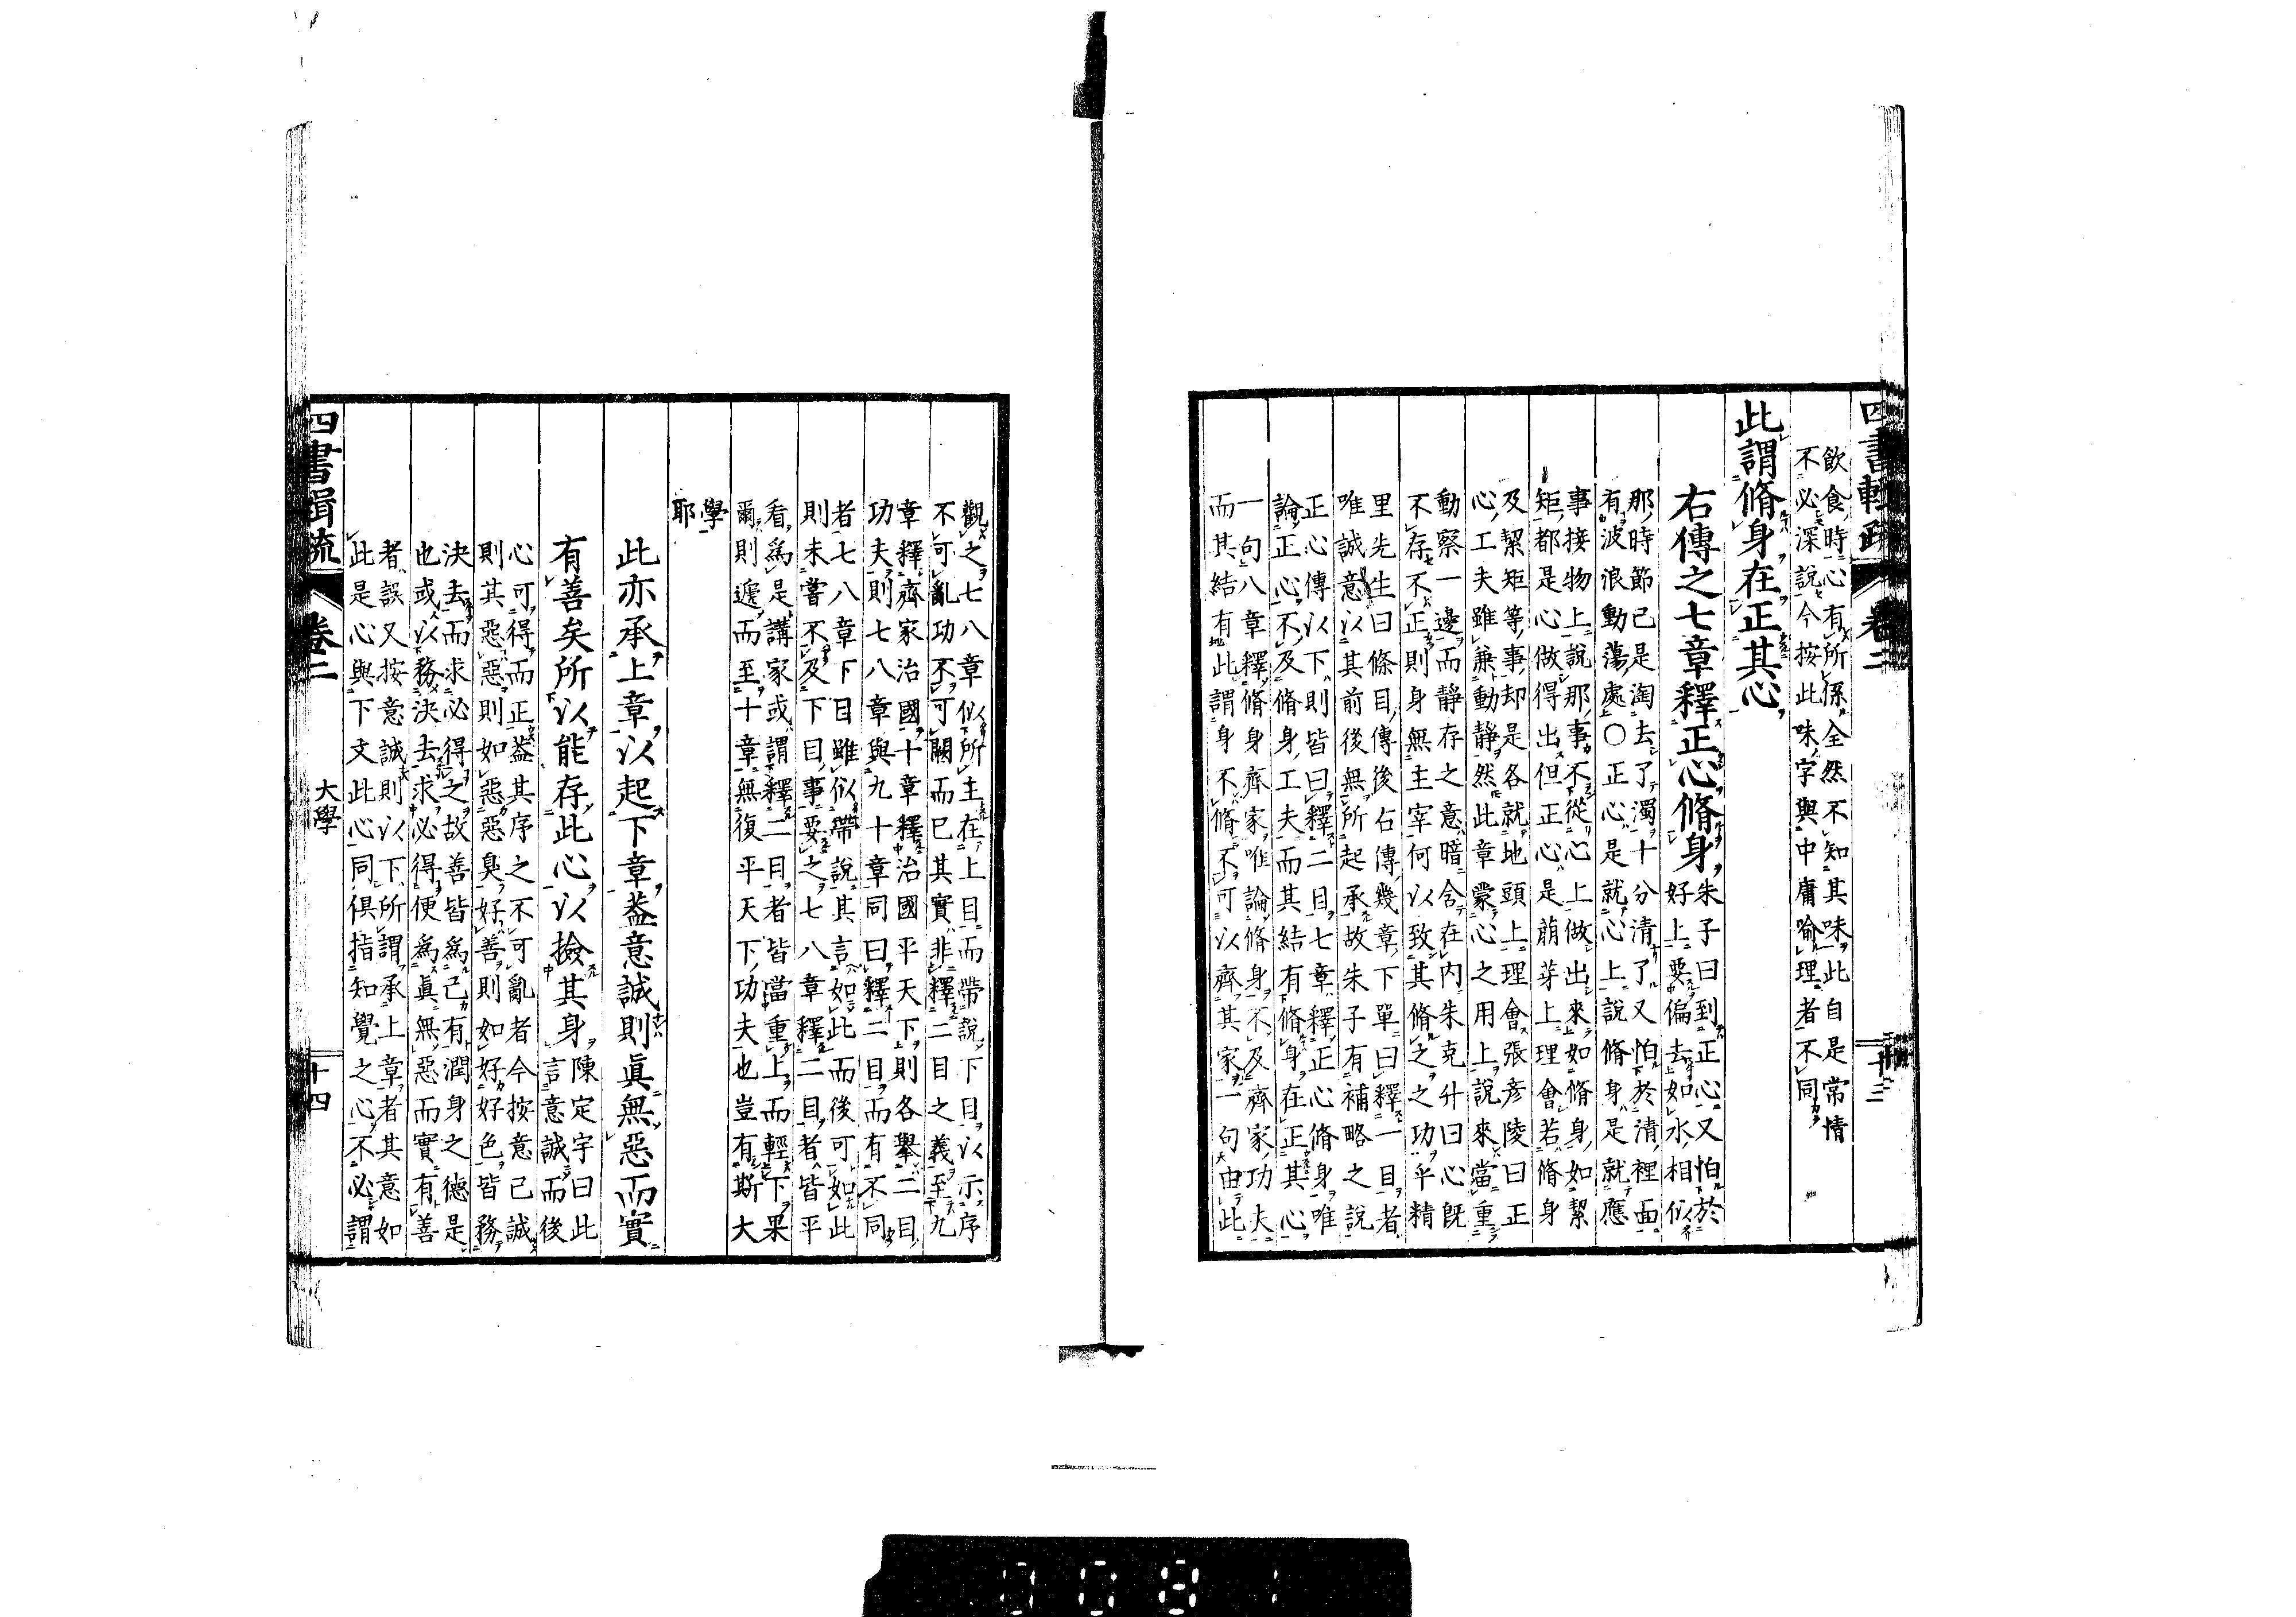 四書輯疏 卷二 十三
飲食時心有所係全然不知其味此自是常情
不必深說今按此味字與中庸喻理者不同
此謂脩身在正其心
右傳之七章釋正心脩身
朱子曰到正心又怕於
好上要偏去如水相似
那時節已是淘去了濁十分清了又怕於清裡面
有波浪動蕩處○正心是就心上說脩身是就應
事接物上說那事不從心上做出來如脩身如絜
矩都是心做得出但正心是萠芽上理會若脩身
及絜矩等事却是各就地頭上理會張彥陵曰正
心工夫雖兼動靜然此章蒙心之用上說來當重
動察一邊而靜存之意暗含在內朱克升曰心旣
不存不正則身無主宰何以致其脩之之功乎精
里先生曰條目傳後右傳幾章下單曰釋一目者
唯誠意以其前後無所起承故朱子有補略之說
正心傳以下則皆曰釋二目七章釋正心脩身唯
論正心不及脩身工夫而其結有脩身在正其心
一句八章釋脩身齊家唯論脩身不及齊家功夫
而其結有此謂身不脩不可以齊其家一句由此
觀之七八章似所主在上目而帶說下目以示序
不可亂功不可闕而已其實非釋二目之義至九
章釋齊家治國十章釋治國平天下則各擧二目
功夫則七八章與九十章同曰釋二目而有不同
者七八章下目雖似帶說其言如此而後可如此
則未嘗不及下目事要之七八章釋二目者皆平
看爲是講家或謂釋二目者皆當重上而輕下果
爾則遞而至十章無復平天下功夫也豈有斯大
學
耶
此亦承上章以起下章葢意誠則眞無惡而實
有善矣所以能存此心以檢其身
陳定宇曰此
言意誠而後
心可得而正葢其序之不可亂者今按意已誠
則其惡惡則如惡惡臭好善則如好好色皆務
決去而求必得之故善皆爲己有潤身之德是
也或以務決去求必得便爲眞無惡而實有善
者誤又按意誠則以下所謂承上章者其意如
此是心與下文此心同俱指知覺之心不必謂
四書輯疏 卷二 大學 十四